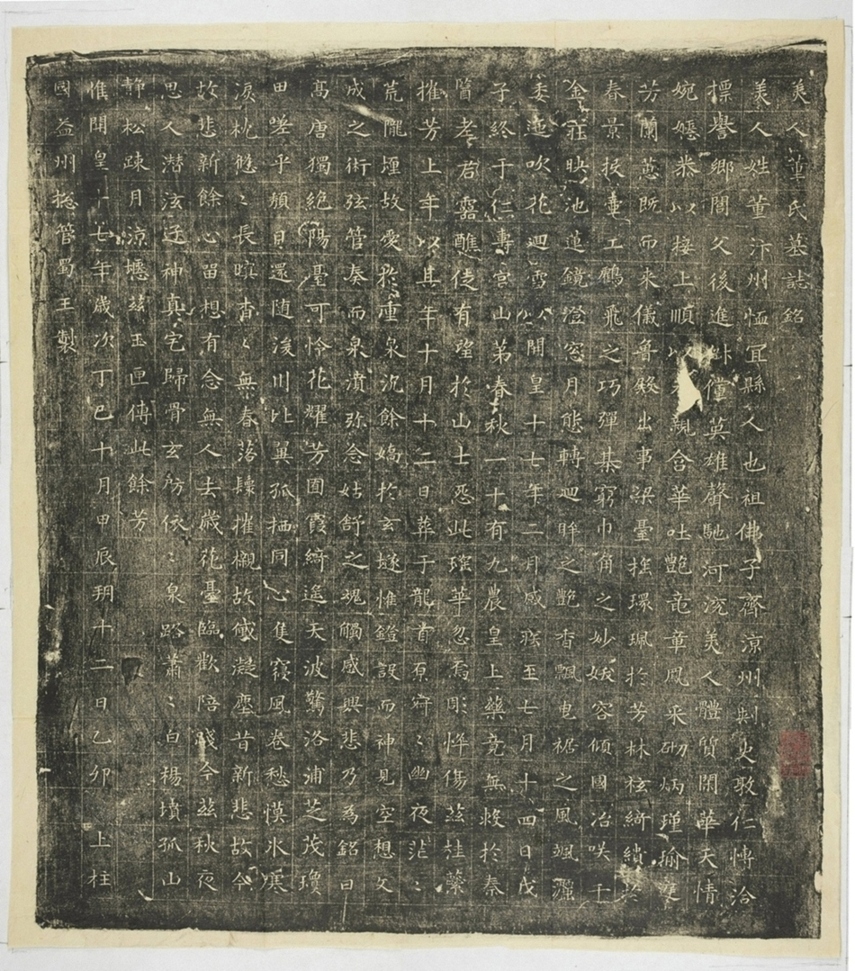 美人董氏墓誌銘
美人姓董汴州恤宜縣人也祖佛子齊涼州刺史敦仁博洽
標譽鄉閭父後進俶儻英雄聲馳河渷美人體質閑華天情
婉嫕恭以接上順以親含華吐艷竜章鳳采砌炳瑾瑜庭
芳蘭蕙既而來儀魯殿出事梁臺搖環珮於芳林袨綺繢於
春景投壺工鶴飛之巧彈棊窮巾角之妙妖容傾國冶咲千
金莊映池蓮鏡澄窗月態轉迴眸之艷香飄曳裾之風颯灑
委迤吹花迴雪以開皇十七年二月感疾至七月十四日戊
子終于仁壽宮山第春秋一十有九農皇上藥竟無救於秦
醫老君靈醮徒有望於山士怨此瑤華忽焉彫悴傷茲桂蘂
摧芳上年以其年十月十二日葬于龍首原寂〻幽夜茫〻
荒隴埋故愛於重泉沉餘嬌於玄隧惟鐙設而神見空想文
成之術弦管奏而泉濆弥念姑舒之魂觸感興悲乃為銘曰
高唐獨絕陽臺可怜花耀芳囿霞綺遙天波驚洛浦芝茂瓊
田嗟乎頹日還隨湲川比翼孤栖同心隻寢風卷愁慔冰寒
淚枕悠〻長暝杳〻無春落鬟摧櫬故黛凝塵昔新悲故今
故悲新餘心留想有念無人去歲花臺臨歡陪踐今茲秋夜
思人潛泫迋神真宅歸骨玄房依〻泉路蕭〻白楊墳孤山
靜松踈月涼瘞茲玉匣傳此餘芳
惟開皇十七年歲次丁巳十月甲辰朔十二日乙卯 上柱
國益州揔管蜀王製